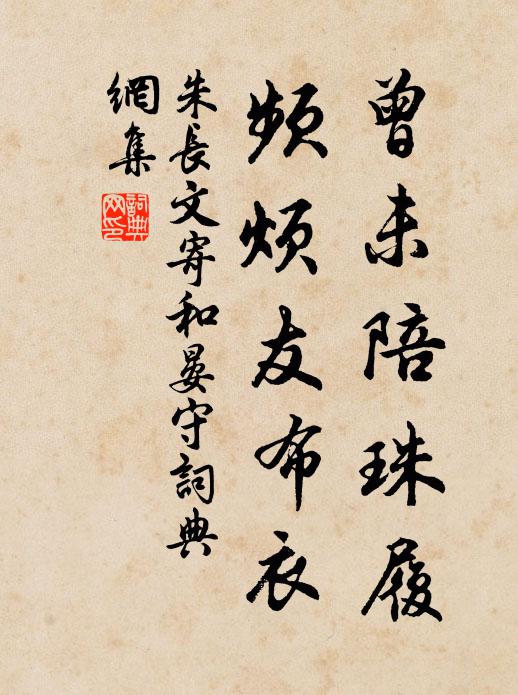 曾未陪珠履
頻煩友布衣
朱長文寄和晏守詞典
網集
詞典
网印